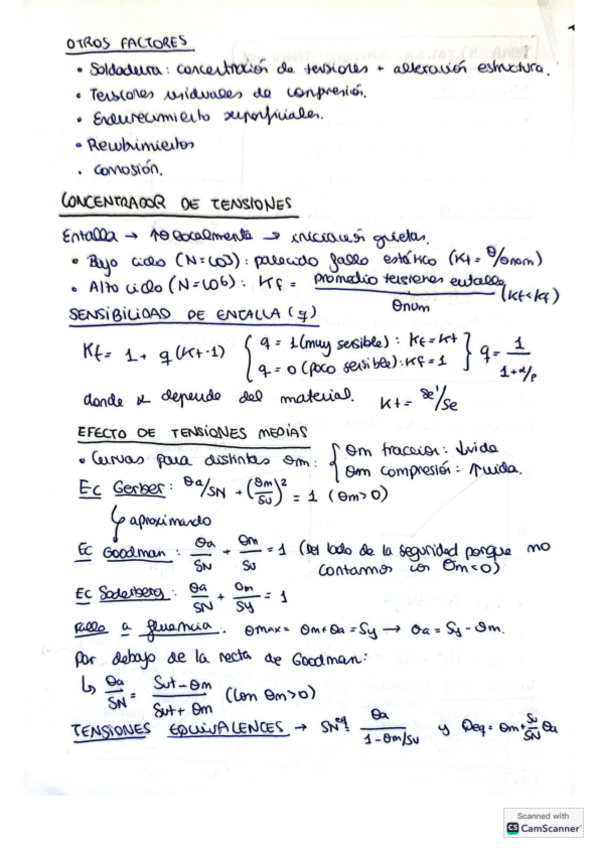 OTROS FACTORES
• Soldadura: concentración de tensiones + alteración estructura.
• Tensiones residuales de compresión.
• Endurecimiento superficiales.
• Recubrimientos
• Corrosión.
CONCENTRADOR DE TENSIONES
Entalla → ↑σ localmente → iniciación grietas.
• Bajo ciclo (N=10^3): parecido fallo estático (Kt = σ/σnom)
• Alto ciclo (N=10^6): Kf = promedio tensiones entalla / σnom (Kt<Kf)
SENSIBILIDAD DE ENTALLA (q)
Kf = 1 + q(Kt-1) { q = 1 (muy sensible): Kf = Kt } q = 1/(1+α/ρ)
q = 0 (poco sensible): Kf = 1
donde α depende del material. Kt = Se'/Se
EFECTO DE TENSIONES MEDIAS
• Curvas para distintas σm: { σm traccion: ↓vida
σm compresión: ↑vida.
Ec Gerber: σa/SN + (σm/Su)² = 1 (σm>0)
↳ aproximando
Ec Goodman: σa/SN + σm/Su = 1 (Del lado de la seguridad porque no
contamos con σm<0)
Ec Soderberg: σa/SN + σm/Sy = 1
Fallo a fluencia: σmax = σm + σa = Sy → σa = Sy - σm.
Por debajo de la recta de Goodman:
↳ σa/SN = (Sut - σm)/(Sut + σm) (con σm>0)
TENSIONES EQUIVALENCES → SN^eq = σa/(1-σm/Su) y σeq = σm + Su/SN σa
Scanned with
CS CamScanner